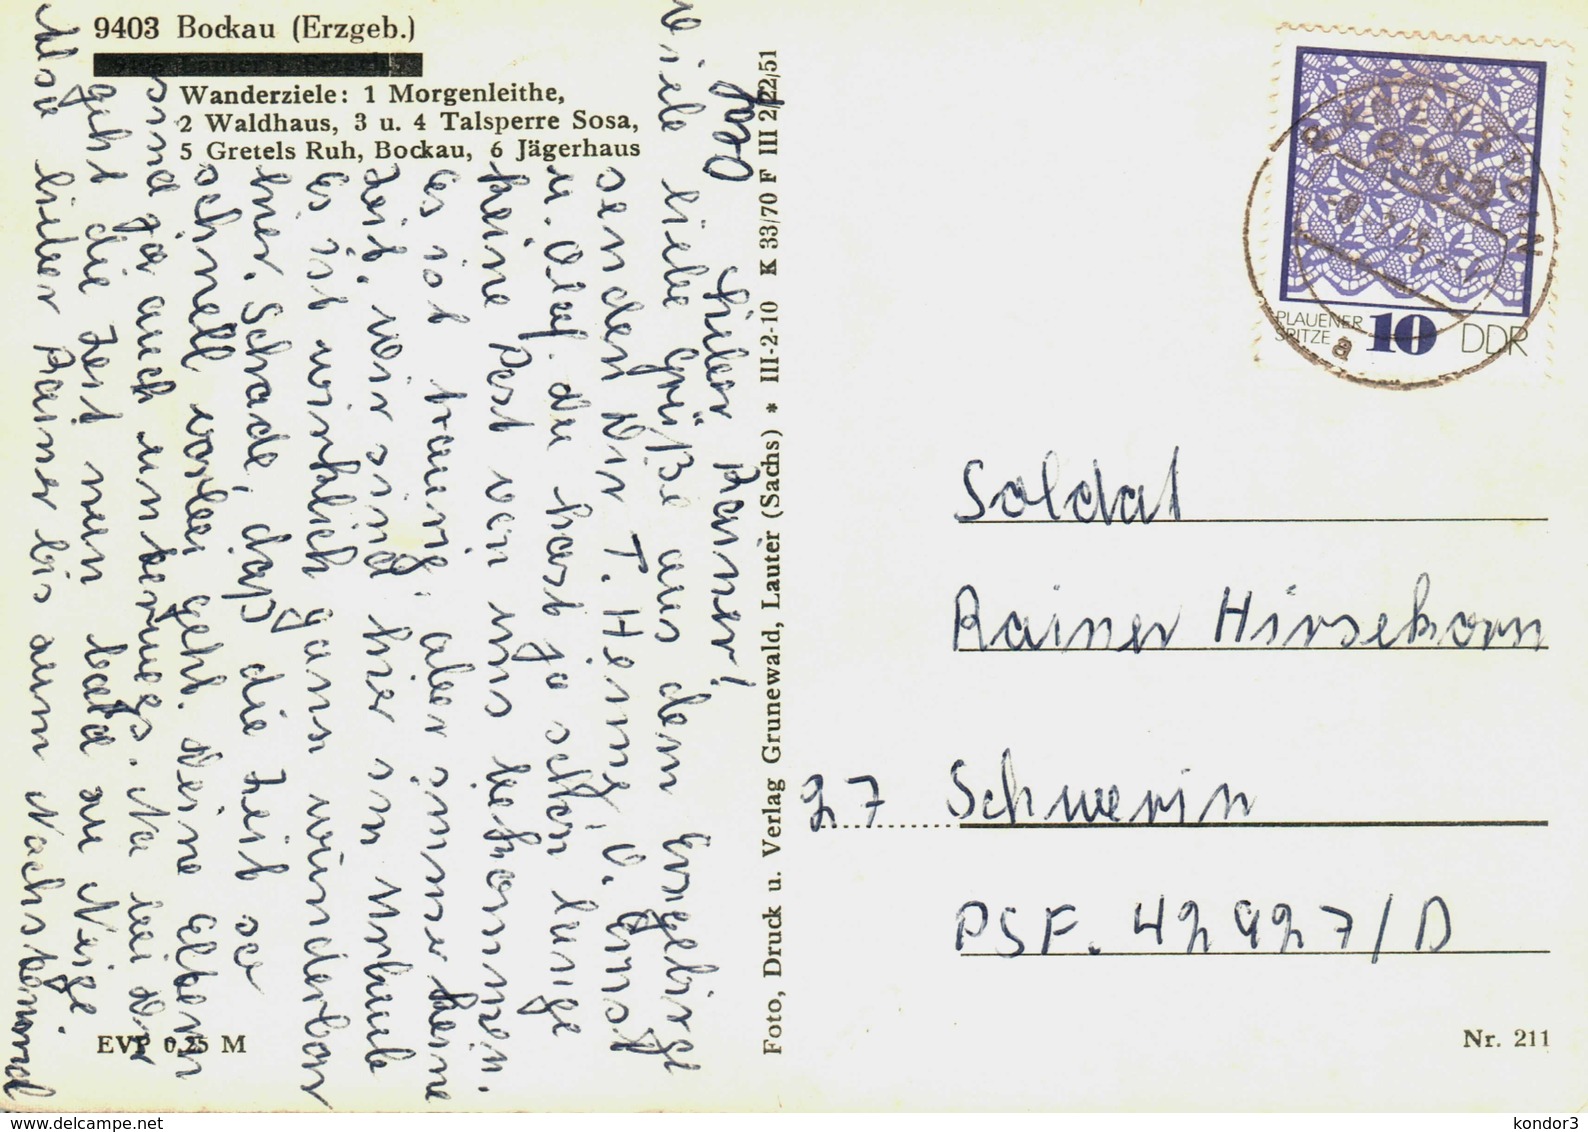 9403 Bockau (Erzgeb.)
Wanderziele: 1 Morgenleithe,
2 Waldhaus, 3 u. 4 Talsperre Sosa,
5 Gretels Ruh, Bockau, 6 Jägerhaus
Lieber Rainer!
Viele liebe Grüße aus dem Erzgebirge
senden Dir T. Henny, O. Ernst
u. Olaf. du hast ja schon lange
keine Post von uns bekommen.
es ist traurig, aber immer keine
Zeit. wir sind hier im Urlaub
es ist wirklich ganz wunderbar
hier. Schade, daß die Zeit so
schnell vorbei geht. Deine Eltern
sind ja auch unterwegs. Na bei Dir
geht die Zeit nun bald zu Neige.
Also lieber Rainer bis zum
Foto, Druck u. Verlag Grunewald, Lauter (Sachs) * III-2-10 K 33/70 F III 2/22/51
EVP 0,25 M
PLAUENER
SPITZE
10
DDR
a
Soldat
Rainer Hirsekorn
27 Schwerin
PSF. 42927/D
Nr. 211
www.delcampe.net
kondor3